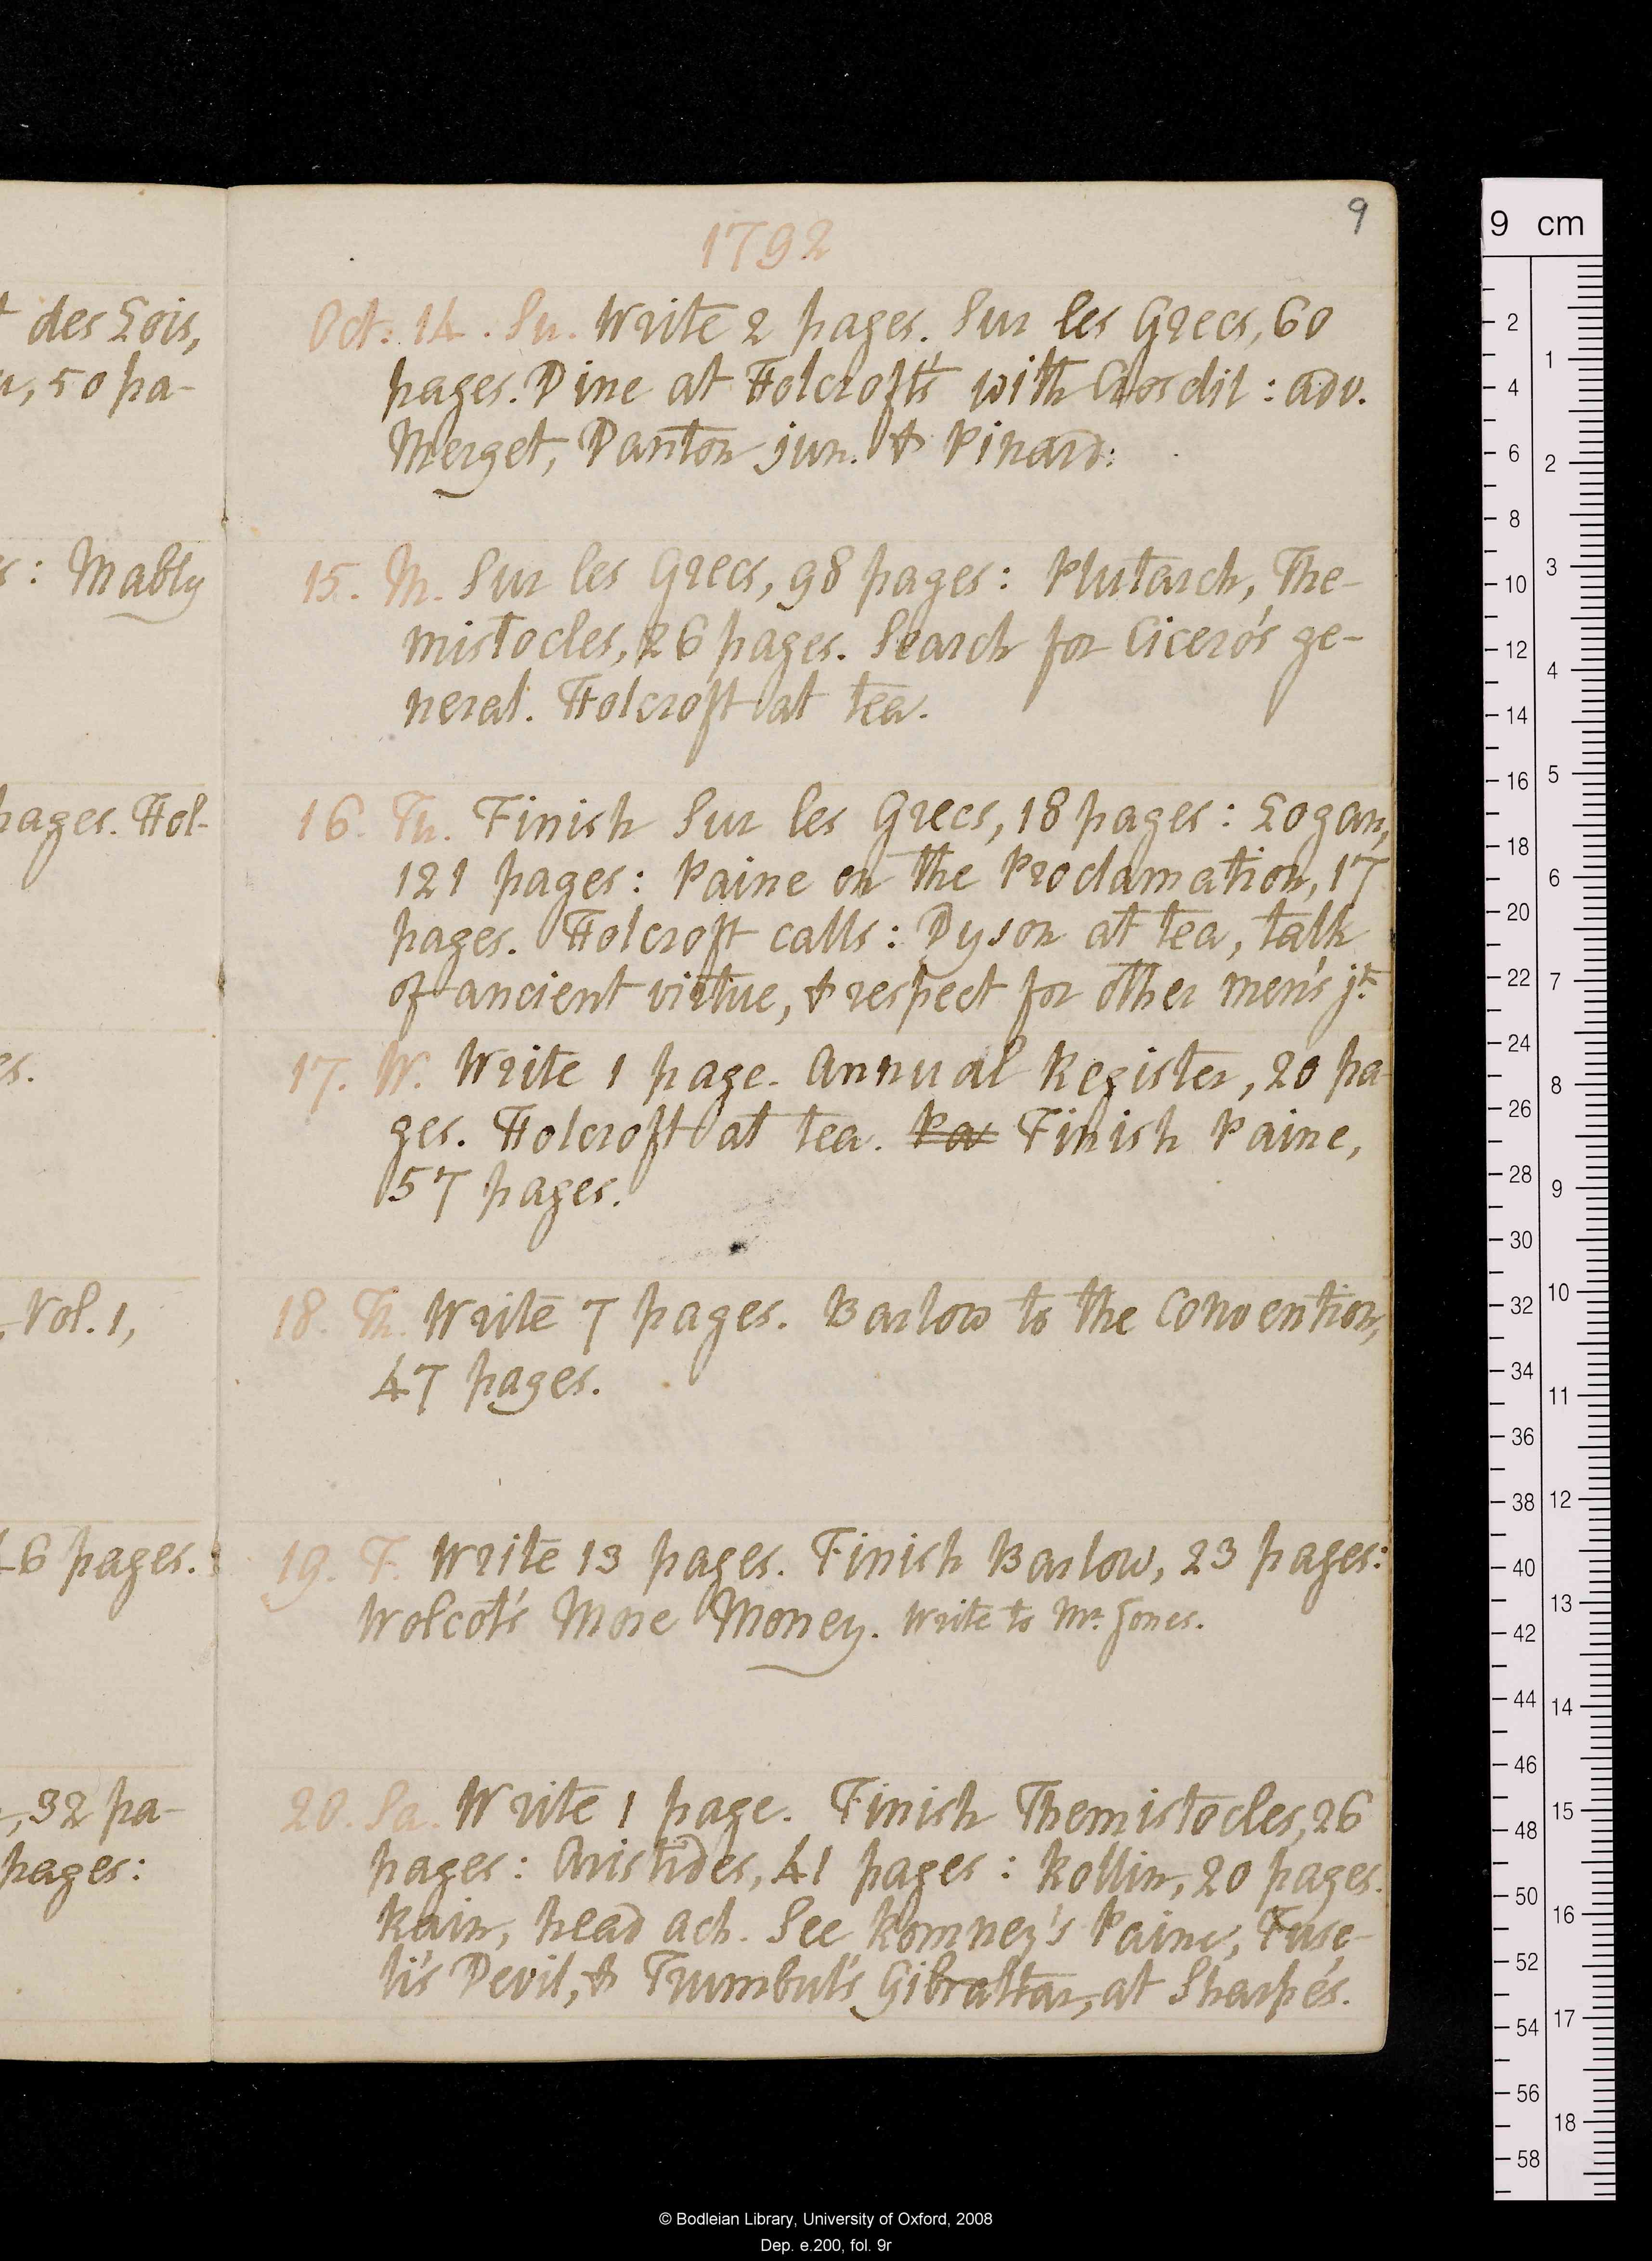 9
1792
Oct. 14. Su. Write 2 pages. Sur les Grecs, 60
pages. Dine at Holcroft's with Crosdil: adv.
Merget, Danton jun. & Pinard:
15. M. Sur les Grecs, 98 pages: Plutarch, The-
mistocles, 26 pages. Search for Cicero's ge-
neral. Holcroft at tea.
16. Tu. Finish Sur les Grecs, 18 pages: Logan,
121 pages: Paine on the Proclamation, 17
pages. Holcroft calls: Dyson at tea, talk
of ancient virtue, & respect for other men's jt.
17. W. Write 1 page. Annual Register, 20 pa-
ges. Holcroft at tea. Pa Finish Paine,
57 pages.
18. Th. Write 7 pages. Barlow to the Convention,
47 pages.
19. F. Write 13 pages. Finish Barlow, 23 pages:
Wolcot's More Money. Write to Mr. Jones.
20. Sa. Write 1 page. Finish Themistocles, 26
pages: Aristides, 41 pages: Rollin, 20 pages.
Rain, head ach. See Romney's Paine, Fuse-
li's Devil, & Trumbul's Gibraltar, at Sharpe's.
des Lois,
, 50 pa-
: Mably
pages. Hol-
es.
Vol. 1,
46 pages.
, 32 pa-
pages:
9 cm
2
4
6
8
10
12
14
16
18
20
22
24
26
28
30
32
34
36
38
40
42
44
46
48
50
52
54
56
58
1
2
3
4
5
6
7
8
9
10
11
12
13
14
15
16
17
18
© Bodleian Library, University of Oxford, 2008
Dep. e.200, fol. 9r